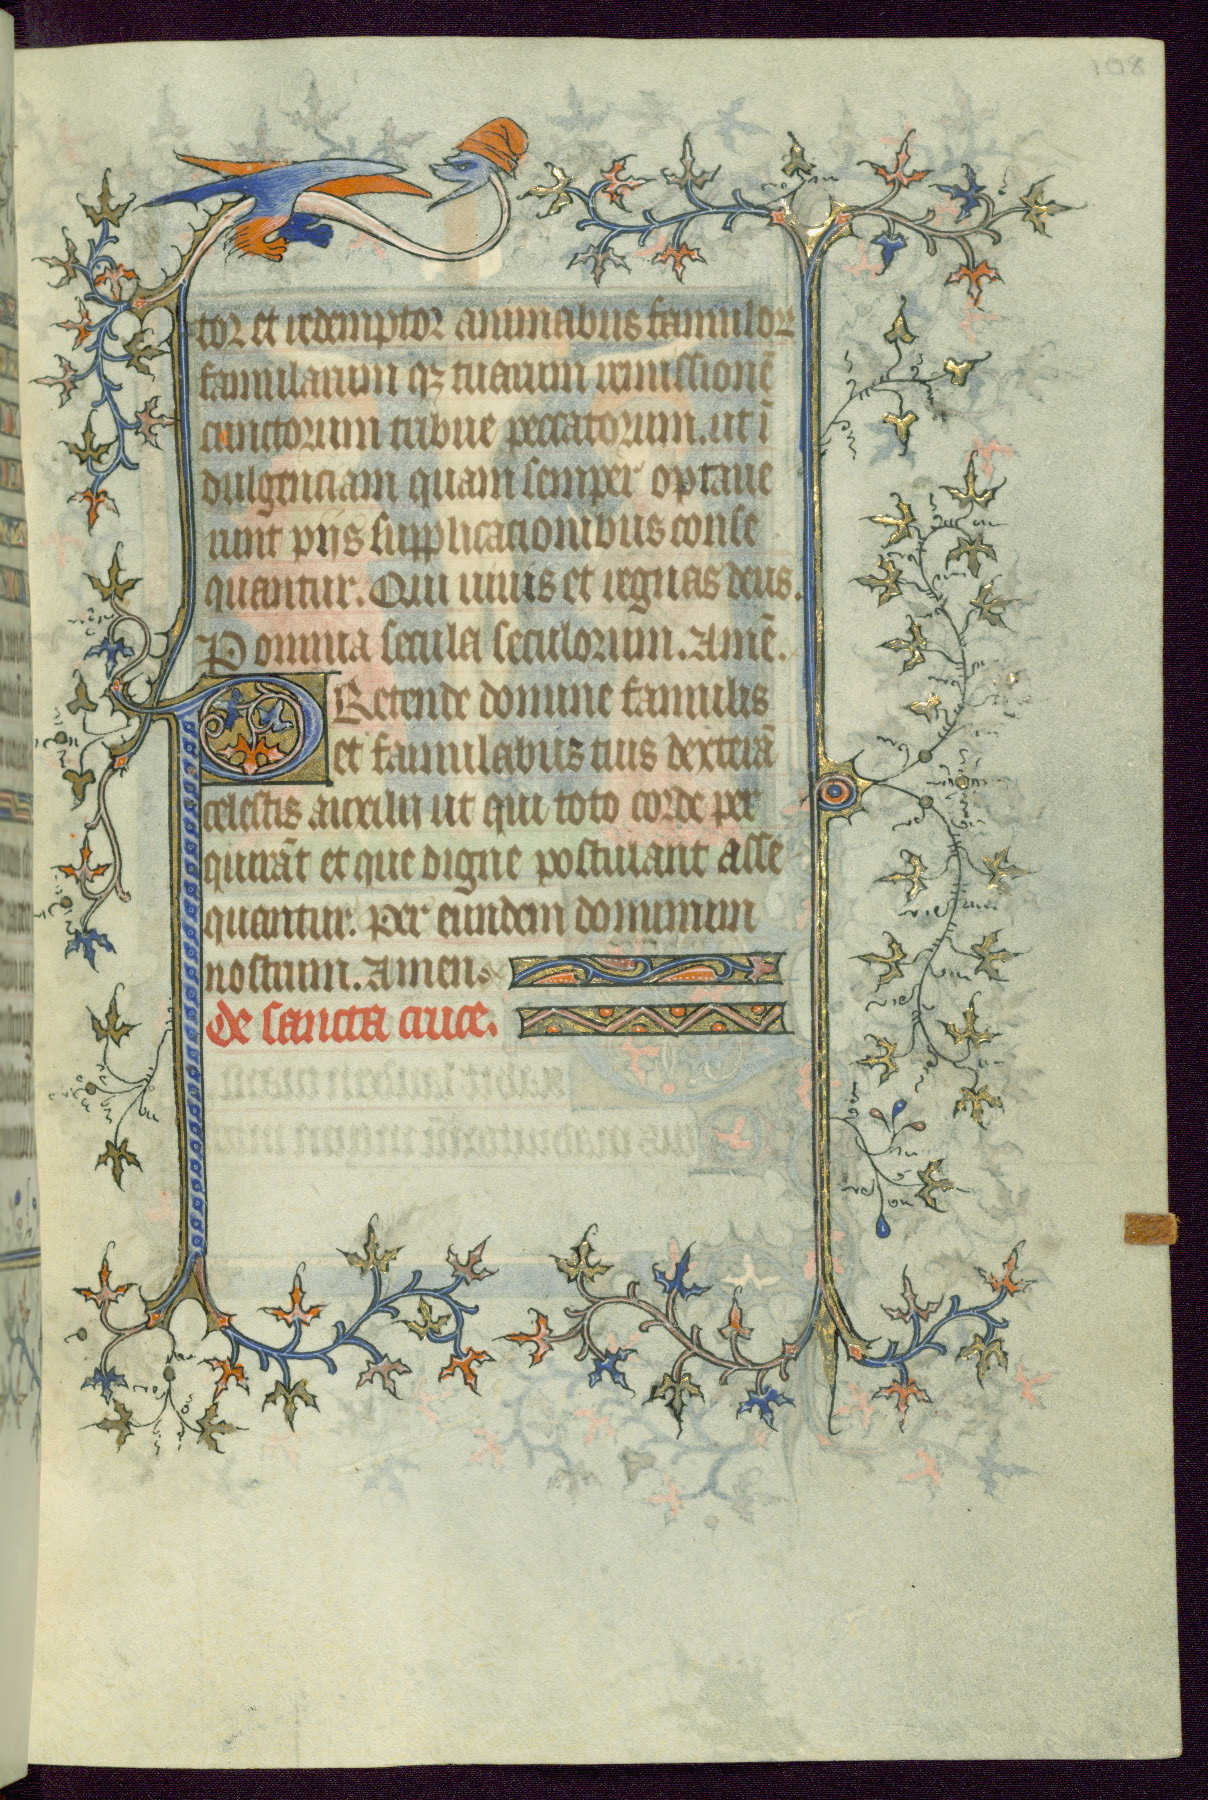 108
tor et redemptor animabus famulor
famularum qz tuarum remissionē
cunctorum tribue peccatorum. ut ī
dulgenciam quam semper optaue
runt pijs supplicacionibus conse
quantur. Qui uiuis et regnas deus.
P omnia secula seculorum. Amē.
PRetende domine famulis
et famulabus tuis dexterā
celestis auxilij ut qui toto corde per
quirāt et que digne postulant asse
quantur. Per eundem dominum
nostrum. Amen.
de sancta cruce.